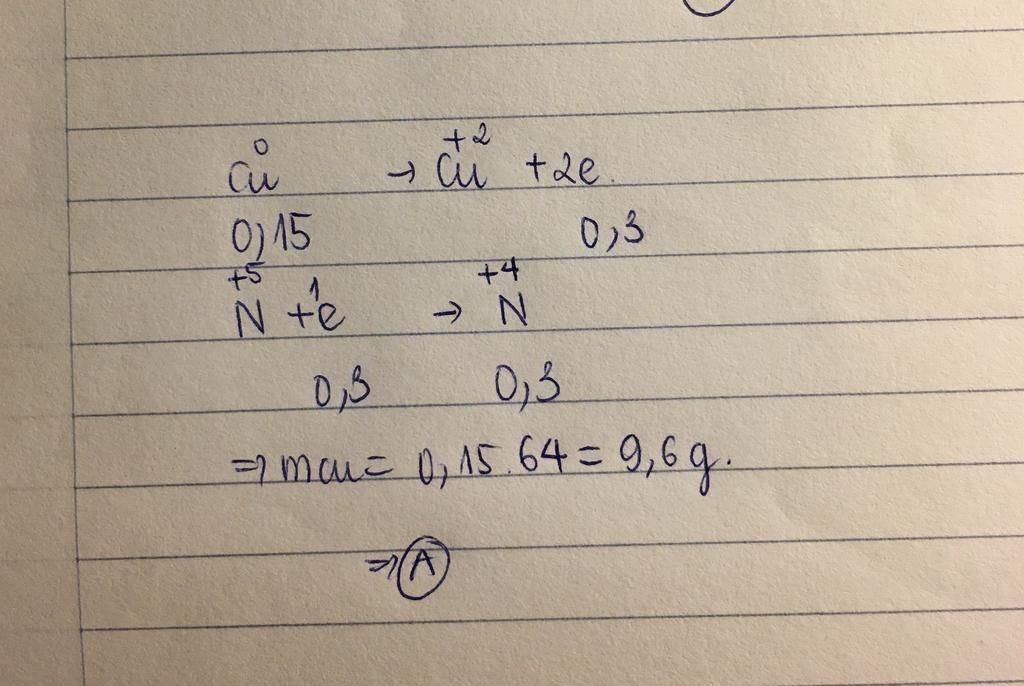 Cu⁰ → Cu⁺² + 2e.
0,15 0,3
N⁺⁵ + 1e → N⁺⁴
0,3 0,3
⇒ mcu = 0,15.64 = 9,6g.
⇒ A